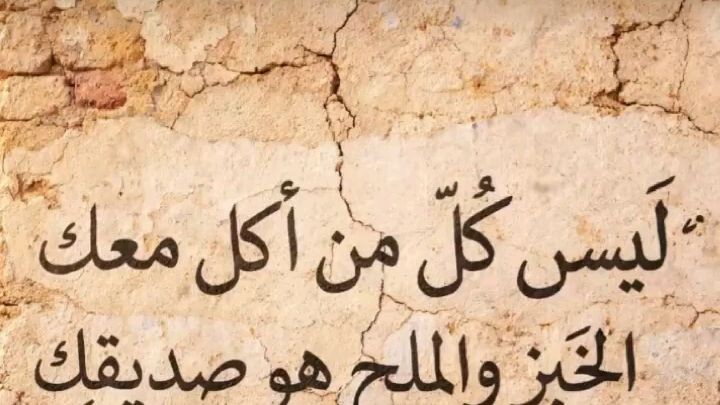 "لَيس كُلّ من أكل معك
الخَبز والملح هو صديقك